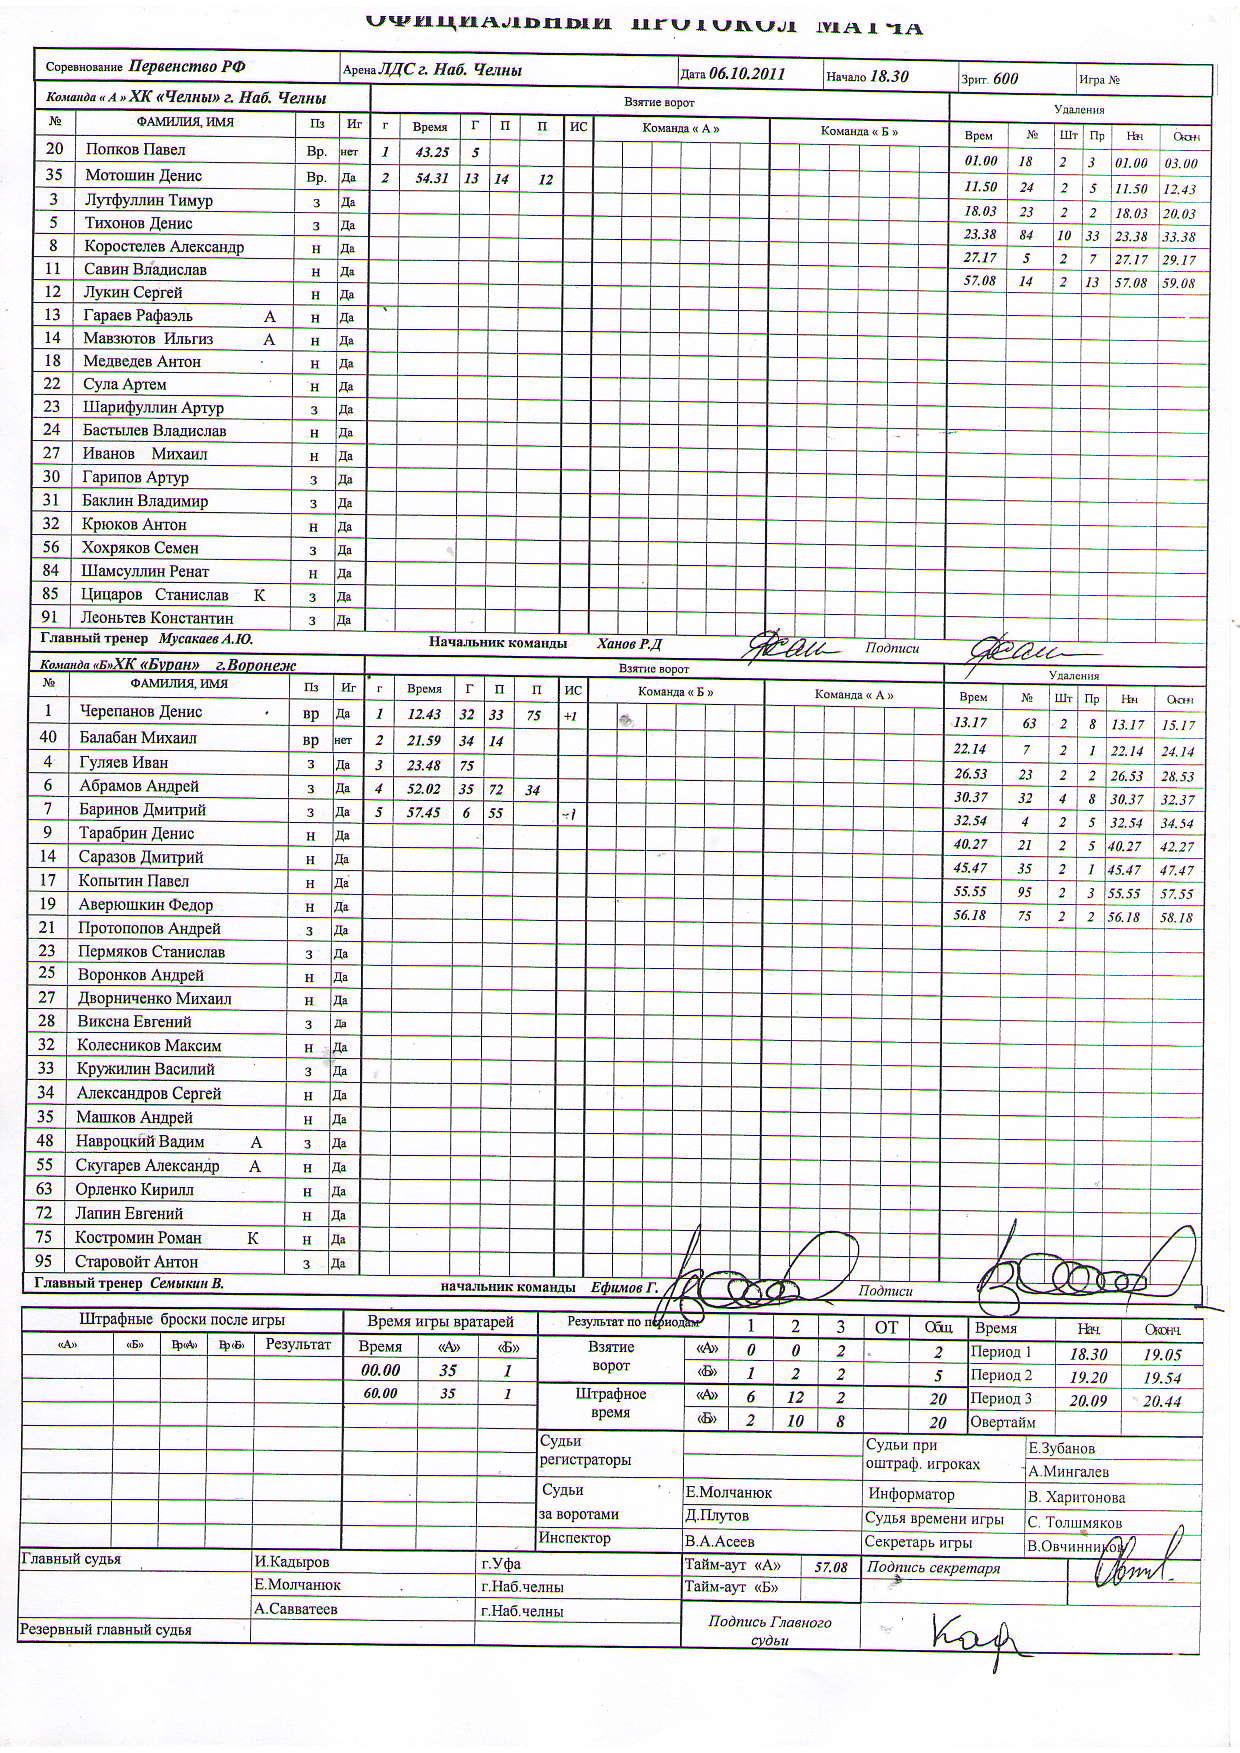 ОФИЦИАЛЬНЫЙ ПРОТОКОЛ МАТЧА
Соревнование Первенство РФ Арена ЛДС г. Наб. Челны Дата 06.10.2011 Начало 18.30 Зрит. 600 Игра №
Команда « А » ХК «Челны» г. Наб. Челны Взятие ворот Удаления
№ ФАМИЛИЯ, ИМЯ Пз Иг г Время Г П П ИС Команда « А » Команда « Б » Врем № Шт Пр Нач Оконч
20 Попков Павел Вр. нет 1 43.25 5 01.00 18 2 3 01.00 03.00
35 Мотошин Денис Вр. Да 2 54.31 13 14 12 11.50 24 2 5 11.50 12.43
3 Лутфуллин Тимур з Да 18.03 23 2 2 18.03 20.03
5 Тихонов Денис з Да 23.38 84 10 33 23.38 33.38
8 Коростелев Александр н Да 27.17 5 2 7 27.17 29.17
11 Савин Владислав н Да 57.08 14 2 13 57.08 59.08
12 Лукин Сергей н Да
13 Гараев Рафаэль А н Да
14 Мавзютов Ильгиз А н Да
18 Медведев Антон н Да
22 Сула Артем н Да
23 Шарифуллин Артур з Да
24 Бастылев Владислав н Да
27 Иванов Михаил н Да
30 Гарипов Артур з Да
31 Баклин Владимир з Да
32 Крюков Антон н Да
56 Хохряков Семен з Да
84 Шамсуллин Ренат н Да
85 Цицаров Станислав К з Да
91 Леоньтев Константин з Да
Главный тренер Мусакаев А.Ю. Начальник команды Ханов Р.Д Подписи
Команда «Б»ХК «Буран» г.Воронеж Взятие ворот Удаления
№ ФАМИЛИЯ, ИМЯ Пз Иг г Время Г П П ИС Команда « Б » Команда « А » Врем № Шт Пр Нач Оконч
1 Черепанов Денис вр Да 1 12.43 32 33 75 +1 13.17 63 2 8 13.17 15.17
40 Балабан Михаил вр нет 2 21.59 34 14 22.14 7 2 1 22.14 24.14
4 Гуляев Иван з Да 3 23.48 75 26.53 23 2 2 26.53 28.53
6 Абрамов Андрей з Да 4 52.02 35 72 34 30.37 32 4 8 30.37 32.37
7 Баринов Дмитрий з Да 5 57.45 6 55 -1 32.54 4 2 5 32.54 34.54
9 Тарабрин Денис н Да 40.27 21 2 5 40.27 42.27
14 Саразов Дмитрий н Да 45.47 35 2 1 45.47 47.47
17 Копытин Павел н Да 55.55 95 2 3 55.55 57.55
19 Аверюшкин Федор н Да 56.18 75 2 2 56.18 58.18
21 Протопопов Андрей з Да
23 Пермяков Станислав з Да
25 Воронков Андрей н Да
27 Дворниченко Михаил н Да
28 Виксна Евгений з Да
32 Колесников Максим н Да
33 Кружилин Василий з Да
34 Александров Сергей н Да
35 Машков Андрей н Да
48 Навроцкий Вадим А з Да
55 Скугарев Александр А н Да
63 Орленко Кирилл н Да
72 Лапин Евгений н Да
75 Костромин Роман К н Да
95 Старовойт Антон з Да
Главный тренер Семыкин В. начальник команды Ефимов Г. Подписи
Штрафные броски после игры Время игры вратарей Результат по периодам 1 2 3 ОТ Общ Время Нач. Оконч.
«А» «Б» Вр«А» Вр«Б» Результат Время «А» «Б» Взятие ворот «А» 0 0 2 2 Период 1 18.30 19.05
00.00 35 1 «Б» 1 2 2 5 Период 2 19.20 19.54
60.00 35 1 Штрафное время «А» 6 12 2 20 Период 3 20.09 20.44
«Б» 2 10 8 20 Овертайм
Судьи регистраторы Судьи при оштраф. игроках Е.Зубанов
А.Мингалев
Судьи за воротами Е.Молчанюк Информатор В. Харитонова
Д.Плутов Судья времени игры С. Толшмяков
Инспектор В.А.Асеев Секретарь игры В.Овчинников
Главный судья И.Кадыров г.Уфа Тайм-аут «А» 57.08 Подпись секретаря
Е.Молчанюк г.Наб.челны Тайм-аут «Б»
А.Савватеев г.Наб.челны Подпись Главного судьи
Резервный главный судья